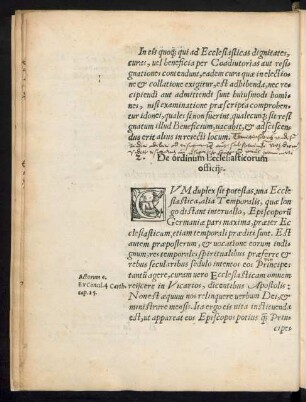 In eis quoq; qui ad Ecclesiasticas dignitates,
curas, uel beneficia per Coadiutorias aut resi
gnationes contendunt, eadem cura quæ in electio
ne & collatione exigitur, est adhibenda, nec re
cipiendi aut admittendi sunt huiusmodi homi
nes, nisi examinatione præscripta comprobentur
idonei, quales si non fuerint, qualecunq; sit resi
gnatum illud Beneficium, uacabit, & adsciscen
dus erit alius in reiecti locum.
2. De ordinum Ecclesiasticorum
officijs.
CVM duplex sit potestas, una Eccle
siastica, alia Temporalis, quæ lon
go distant interuallo, Episcoporū
Germaniæ pars maxima, præter Ec
clesiasticam, etiam temporali præditi sunt. Est
autem præposterum, & uocatione eorum indi
gnum, res temporales spiritualibus præferre &
rebus secularibus sedulo intentos eos Principes
tantū agere, curam uero Ecclesiasticam omnem
Actorum 6.
Ex Concil. 4 Carth.
cap. 15.
reijcere in Vicarios, dicentibus Apostolis:
Non est æquum nos relinquere uerbum Dei, &
ministrare mensis. Ita ergo eis uita instituenda
est, ut appareat eos Episcopos potius q̃ Prin
cipes